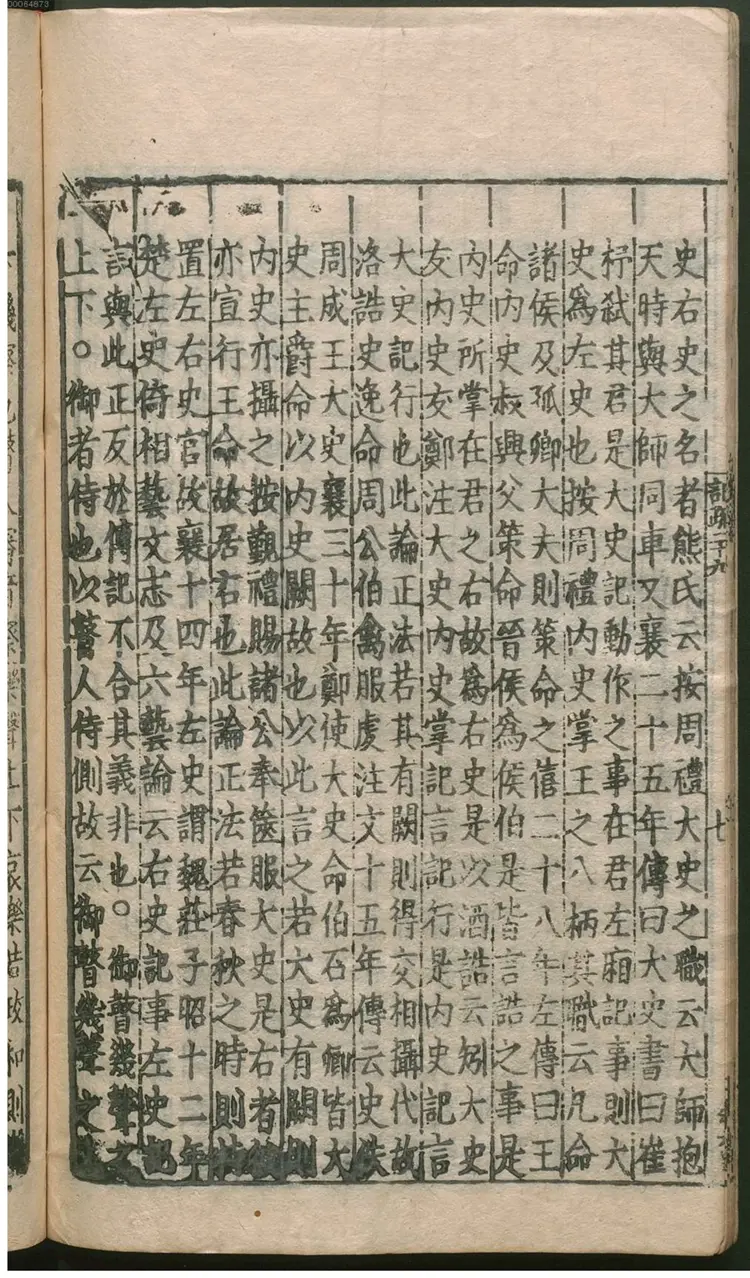 00064873
史右史之名者熊氏云按周禮大史之職云大師抱
天時與大師同車又襄二十五年傳曰大史書曰崔
杼弑其君是大史記動作之事在君左廂記事則大
史爲左史也按周禮内史掌王之八柄其職云凡命
諸侯及孤卿大夫則策命之僖二十八年左傳曰王
命内史叔興父策命晉侯爲侯伯是皆言誥之事是
内史所掌在君之右故爲右史是以酒誥云矧大史
友内史友鄭注大史内史掌記言記行是内史記言
大史記行也此論正法若其有闕則得交相攝代故
洛誥史逸命周公伯禽服虔注文十五年傳云史佚
周成王大史襄三十年鄭使大史命伯石爲卿皆大
史主爵命以内史闕故也以此言之若大史有闕則
内史亦攝之按覲禮賜諸公奉篋服大史是右者彼
亦宣行王命故居右也此論正法若春秋之時則特
置左右史官故襄十四年左史謂魏莊子昭十二年
楚左史倚相藝文志及六藝論云右史記事左史記
言與此正反於傳記不合其義非也。御瞽幾聲之
上下。御者侍也以瞽人侍側故云御瞽幾聲之
記疏二十九
七